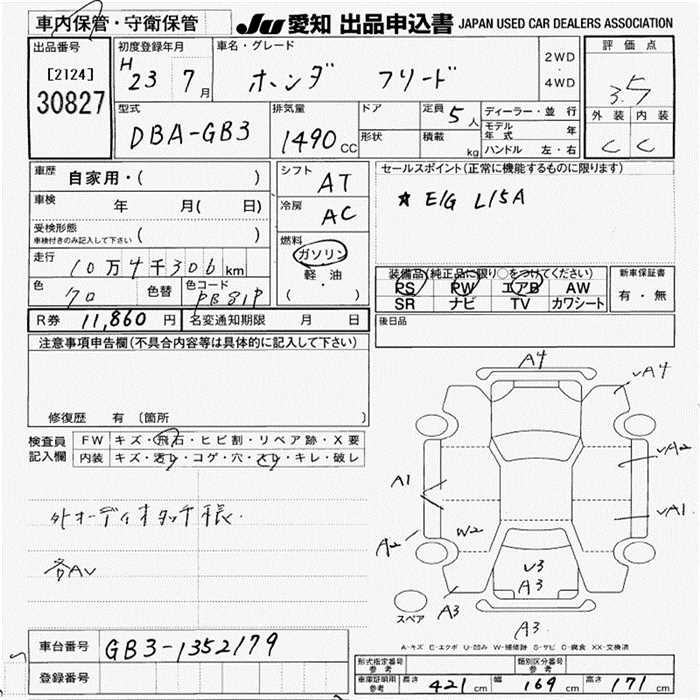 車内保管・守衛保管
JU 愛知 出品申込書 JAPAN USED CAR DEALERS ASSOCIATION
出品番号
[2124]
30827
初度登録年月
H 23 7 月
車名・グレード
ホンダ フリード
2WD
・
4WD
評価点
3.5
外装 内装
C C
型式
DBA-GB3
排気量
1490 CC
ドア
形状
定員 5 人
積載 kg
ディーラー・並行
モデル年式 年
ハンドル 左・右
車歴
自家用・( )
車検 年 月( 日)
受検形態
車検付きのみ記入して下さい ( )
走行
10万4千306 km
色
クロ
色替
色コード
PB81P
シフト
AT
冷房
AC
燃料
ガソリン
・
軽・油
・
( )
セールスポイント(正常に機能するものに限ります)
★ E/G L15A
装備品(純正品に限り○をつけてください)
PS PW エアB AW
SR ナビ TV カワシート
新車保証書
有・無
後日品
R券 11,860 円
名変通知期限 月 日
注意事項申告欄(不具合内容等は具体的に記入して下さい)
修復歴 有 (箇所 )
検査員
記入欄
FW キズ・飛石・ヒビ割・リペア跡・X要
内装 キズ・汚レ・コゲ・穴・スレ・キレ・破レ
外オーディオタッチ様.
各AU
A4
UA4
UA2
A1
UA1
A2
W2
U3
A3
A3
A3
スペア
A-キズ E-エクボ U-凹み W-補修跡 S-サビ C-腐食 XX-交換済
車台番号
GB3-1352179
登録番号
形式指定番号
参考
類別区分番号
参考
車庫証明用
参考
長さ 421 cm 幅 169 cm 高さ 171 cm